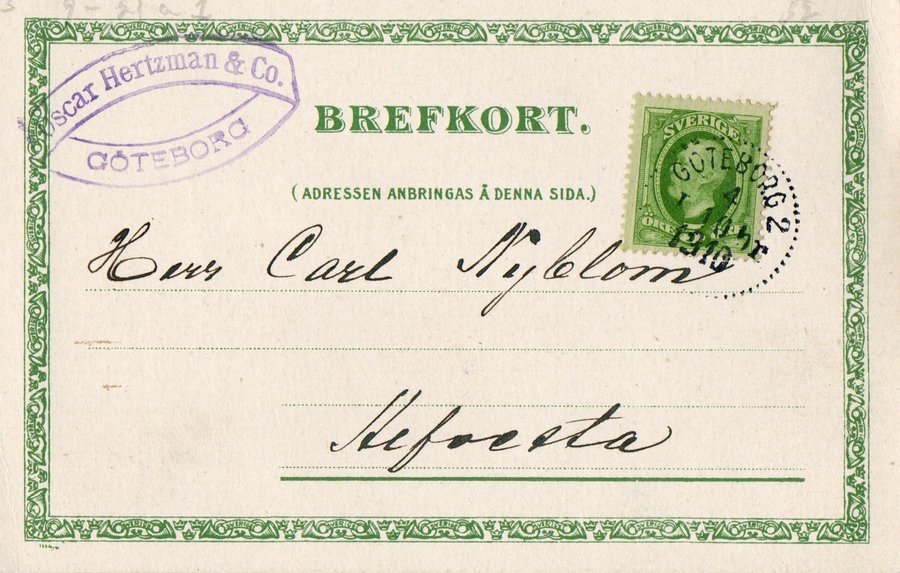 Oscar Hertzman & Co.
GÖTEBORG
BREFKORT.
(ADRESSEN ANBRINGAS Å DENNA SIDA.)
SVERIGE
ÖRE
GÖTEBORG 2
4
1910
Herr Carl Nyblom
Hefvesta